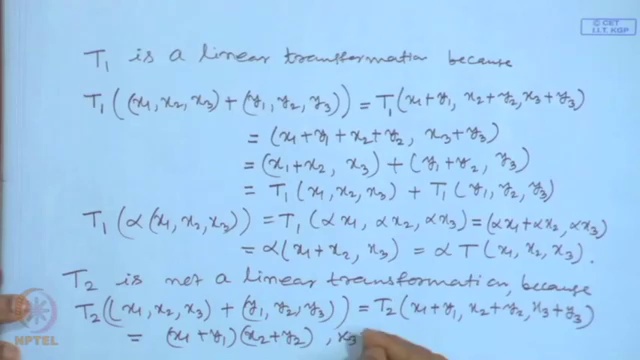 © CET
I.I.T. KGP
T₁ is a linear transformation because
T₁((x₁, x₂, x₃) + (y₁, y₂, y₃)) = T₁(x₁+y₁, x₂+y₂, x₃+y₃)
= (x₁+y₁+x₂+y₂, x₃+y₃)
= (x₁+x₂, x₃) + (y₁+y₂, y₃)
= T₁(x₁, x₂, x₃) + T₁(y₁, y₂, y₃)
T₁(α(x₁, x₂, x₃)) = T₁(αx₁, αx₂, αx₃) = (αx₁+αx₂, αx₃)
= α(x₁+x₂, x₃) = αT(x₁, x₂, x₃).
T₂ is not a linear transformation, because
T₂((x₁, x₂, x₃) + (y₁, y₂, y₃)) = T₂(x₁+y₁, x₂+y₂, x₃+y₃)
= (x₁+y₁)(x₂+y₂), x₃
NPTEL